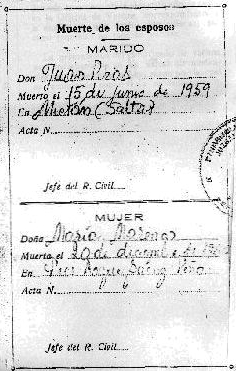 Muerte de los esposos
MARIDO
Don Juan Pros
Muerto el 15 de junio de 1959
En Metán (Salta)
Acta N.
Jefe del R. Civil
MUJER
Doña María
Muerta el 20 de diciembre de
En Pres Roque Sáenz Peña
Acta N.
Jefe del R. Civil